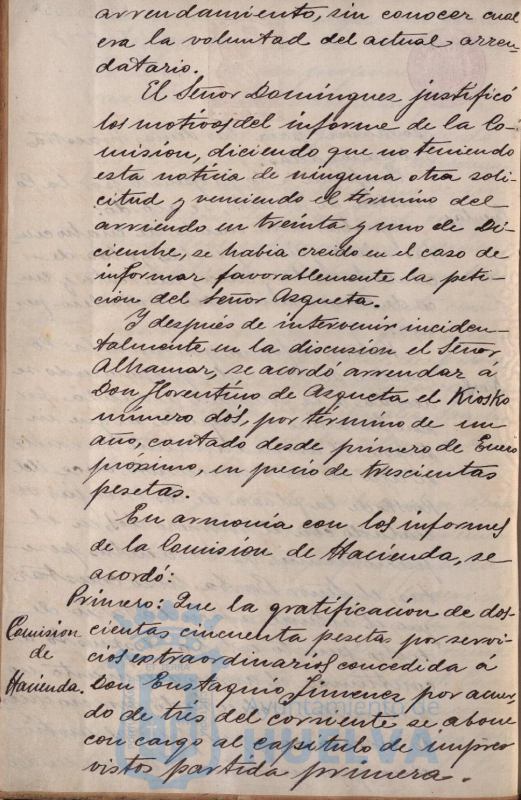 arrendamiento, sin conocer cual
era la voluntad del actual arren-
datario.
El Señor Domínguez justificó
los motivos del informe de la Co-
misión, diciendo que no teniendo
esta noticia de ninguna otra soli-
citud y venciendo el término del
arriendo en treinta y uno de Di-
ciembre, se habia creido en el caso de
informar favorablemente la peti-
ción del Señor Azqueta.
Y después de intervenir inciden-
talmente en la discusión el Señor
Alhamar, se acordó arrendar á
Don Florentino de Azqueta el Kiosko
número dós, por término de un
año, contado desde primero de Enero
próximo, en precio de trescientas
pesetas.
En armonía con los informes
de la Comisión de Hacienda, se
acordó:
Primero: Que la gratificación de dos-
Comisión
de
Hacienda.
cientas cincuenta pesetas por servi-
cios extraordinarios concedida á
Don Eustaquio Jimenez por acuer-
do de trés del corriente se abone
con cargo al capítulo de impre-
vistos partida primera.
Ayuntamiento de
HUELVA